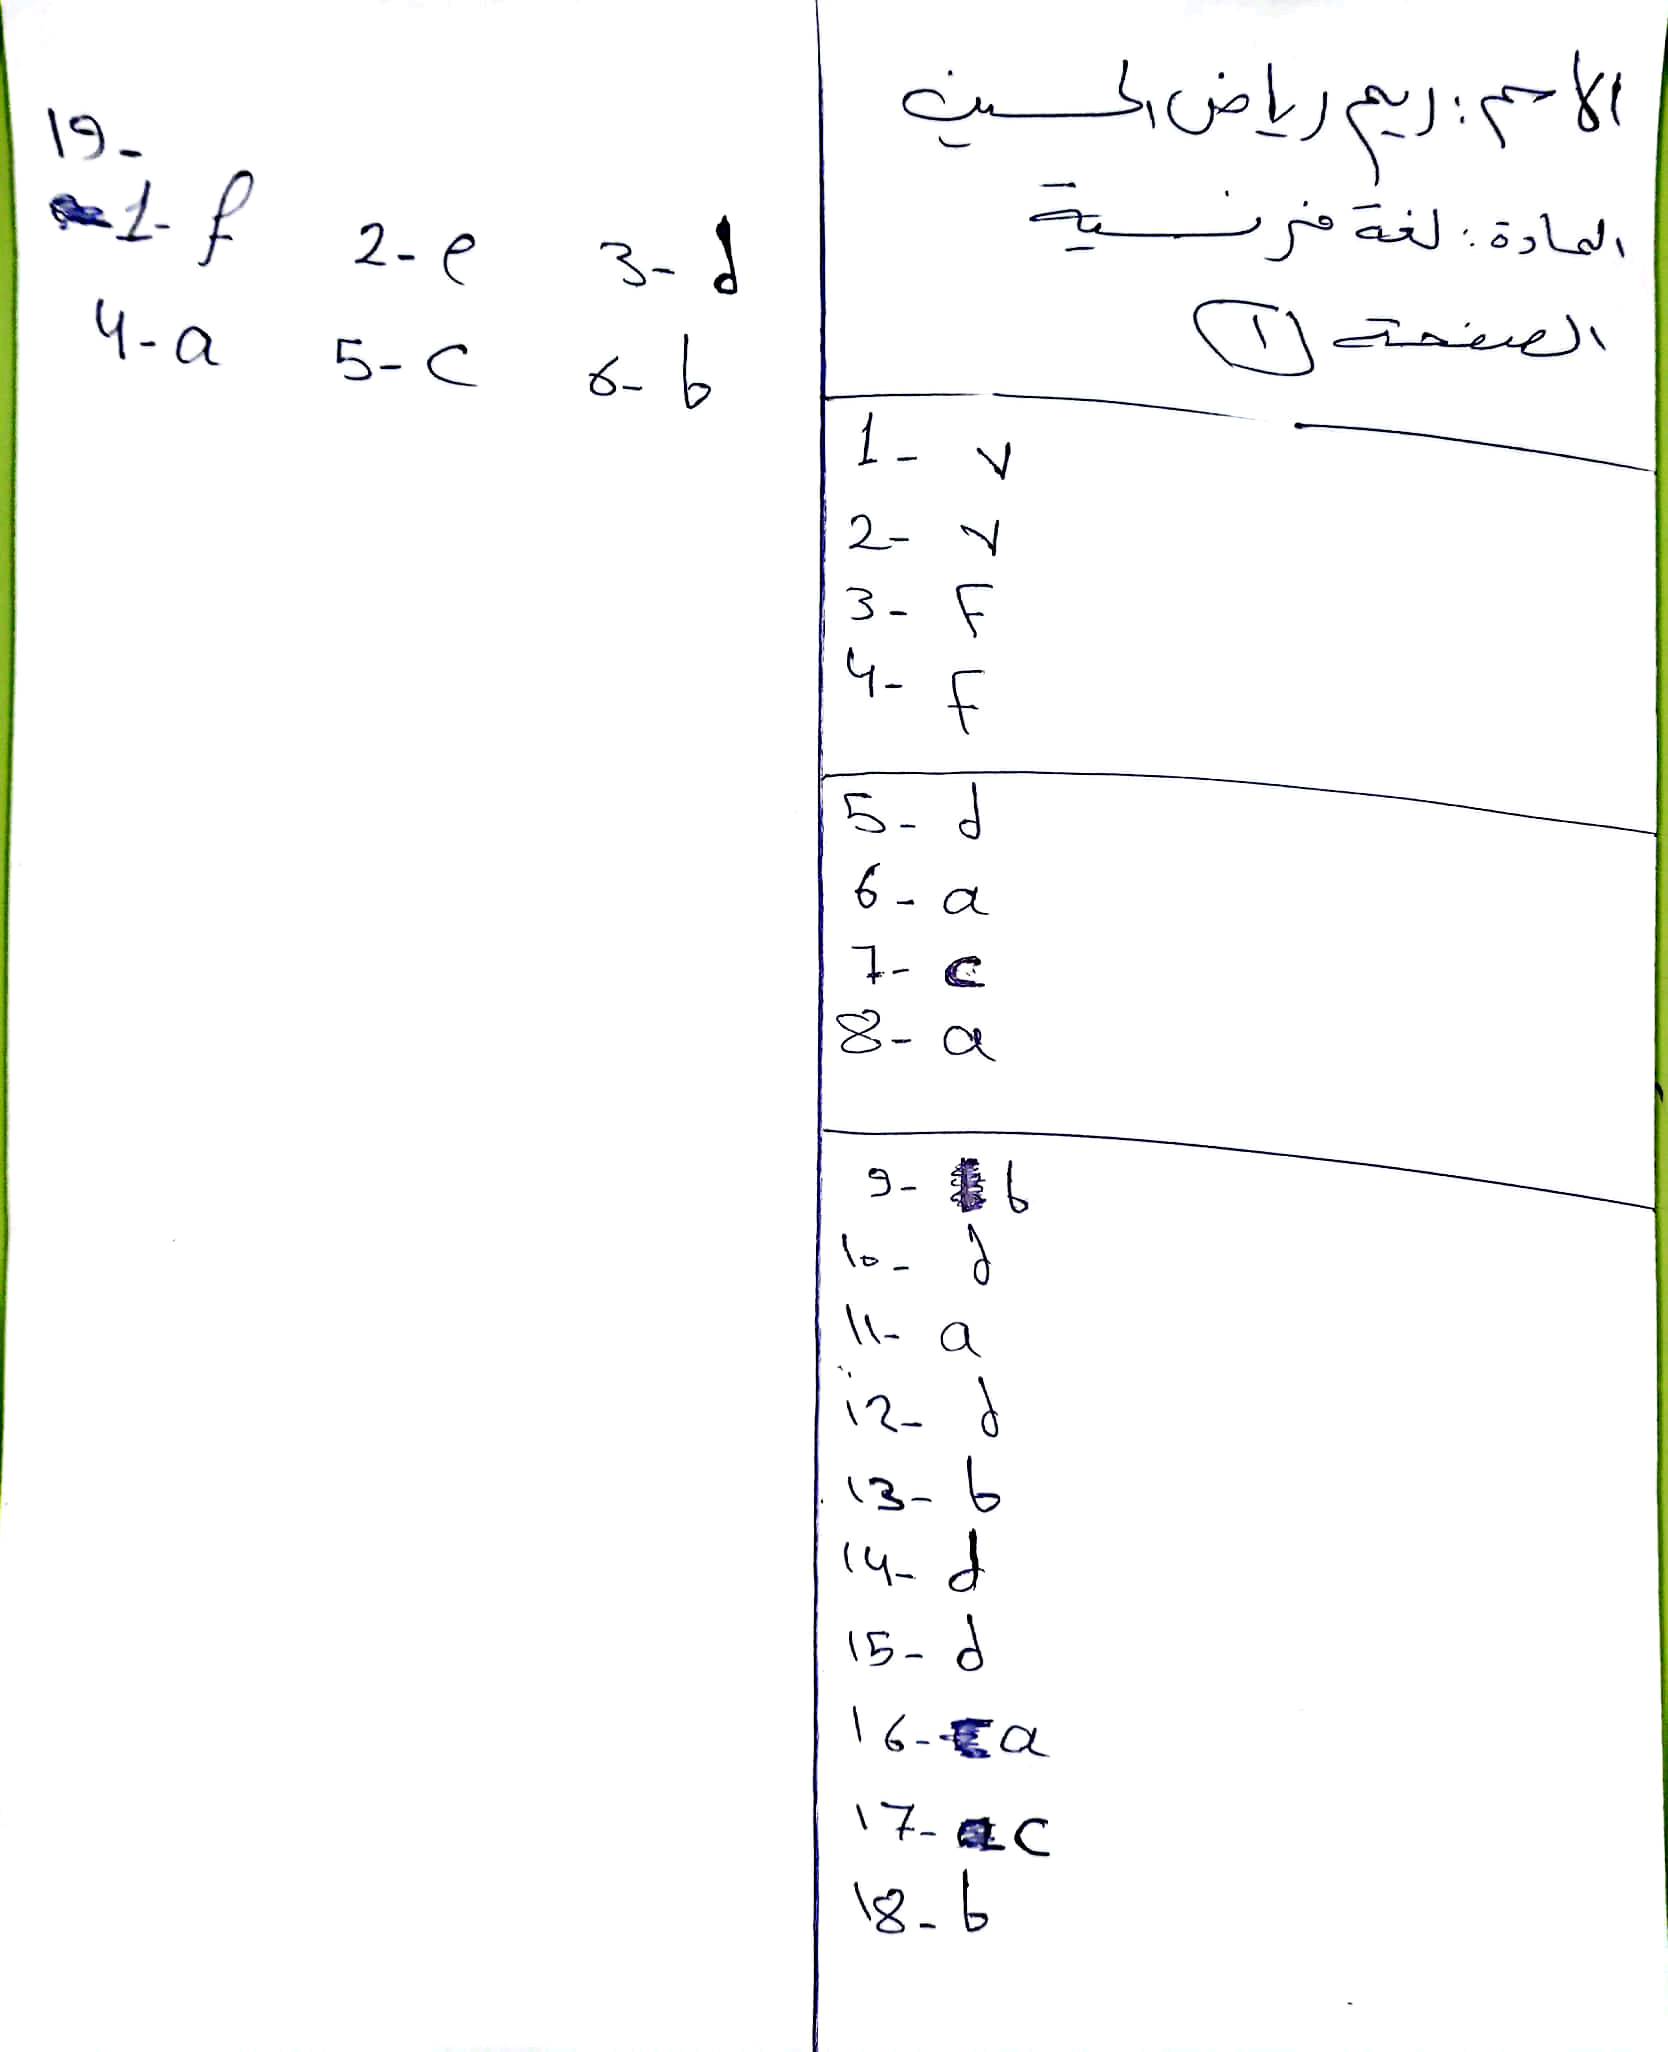 الاسم: ريم رياض الحسين
المادة: لغة فرنسية
الصفحة ①
1- V
2- V
3- F
4- F
5- d
6- a
7- c
8- a
9- b
10- d
11- a
12- d
13- b
14- d
15- d
16- a
17- c
18- b
19-
1- f 2- e 3- d
4- a 5- c 6- b